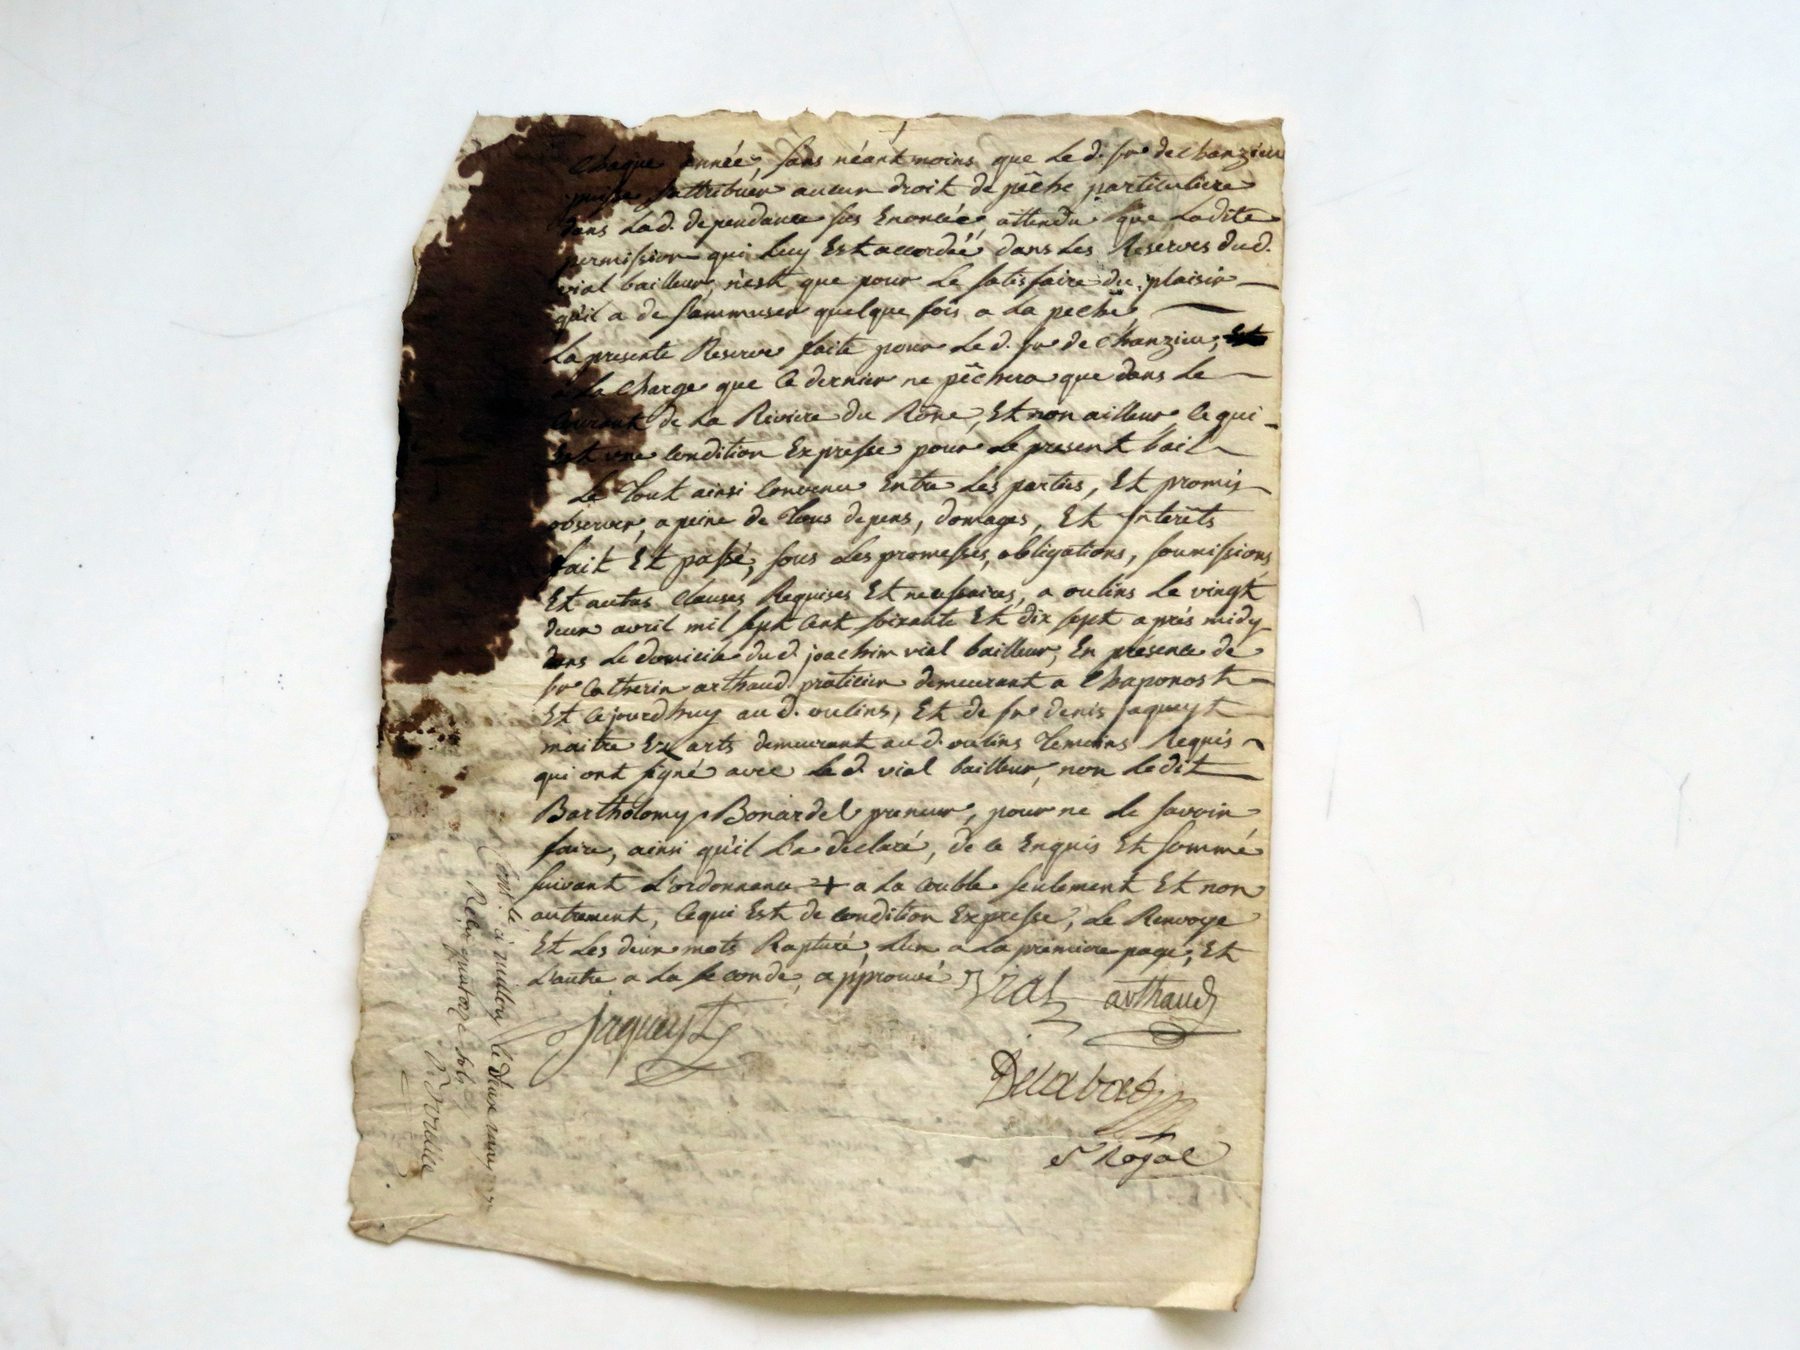 Chaque année, sans néantmoins que Le d. sr. de Chanzieu
puisse s'attribuer aucun droit de pêche particuliere
dans La d. dependance sus Enoncée, attendu que Ladite
permission qui Luy Est accordée dans Les Reserves du d.
vial bailleur, n'est que pour Le satisfaire du plaisir
qu'il a de s'ammuser quelque fois a La peche
La presente Reserve faite pour Le d. sr. de Chanzieu,
a La Charge que Ce dernier ne pêchera que dans Le
Courant de La Riviere du Rône, Et non ailleur Ce qui
Est une Condition Expresse pour Le present bail
Le Tout ainsi Convenu Entre Les parties, Et promis
observer, a peine de Tous depens, domages, Et Interêts
fait Et passé, sous Les promesses, obligations, soumissions
Et autres Clauses Requises Et necessaires, a oulins Le vingt
deux avril mil sept Cent soixante Et dix sept après midy
dans Le domicile du d. joachim vial bailleur, En présence de
sr. Catherin arthaud praticien demeurant a Chaponost
Et Cejourdhuy au d. oulins, Et de sr. denis jaqueyt
maitre Ez arts demeurant au d. oulins Temoins Requis
qui ont signé avec Le d. vial bailleur, non Ledit
Barthélomy Bonardel preneur, pour ne Le savoir
faire, ainsi qu'il L'a declaré, de Ce Enquis Et sommé
suivant L'ordonnance + a La Couble seulement Et non
autrement, Ce qui Est de Condition Expresse, Le Renvoye
Et Les deux mots Rapturé, L'un a La premiere page, Et
L'autre a La seconde, approuvé Vial arthaud
jaqueyt
Delabat
Royal
Contlé à millery le deux may
Reçu quatorze sols